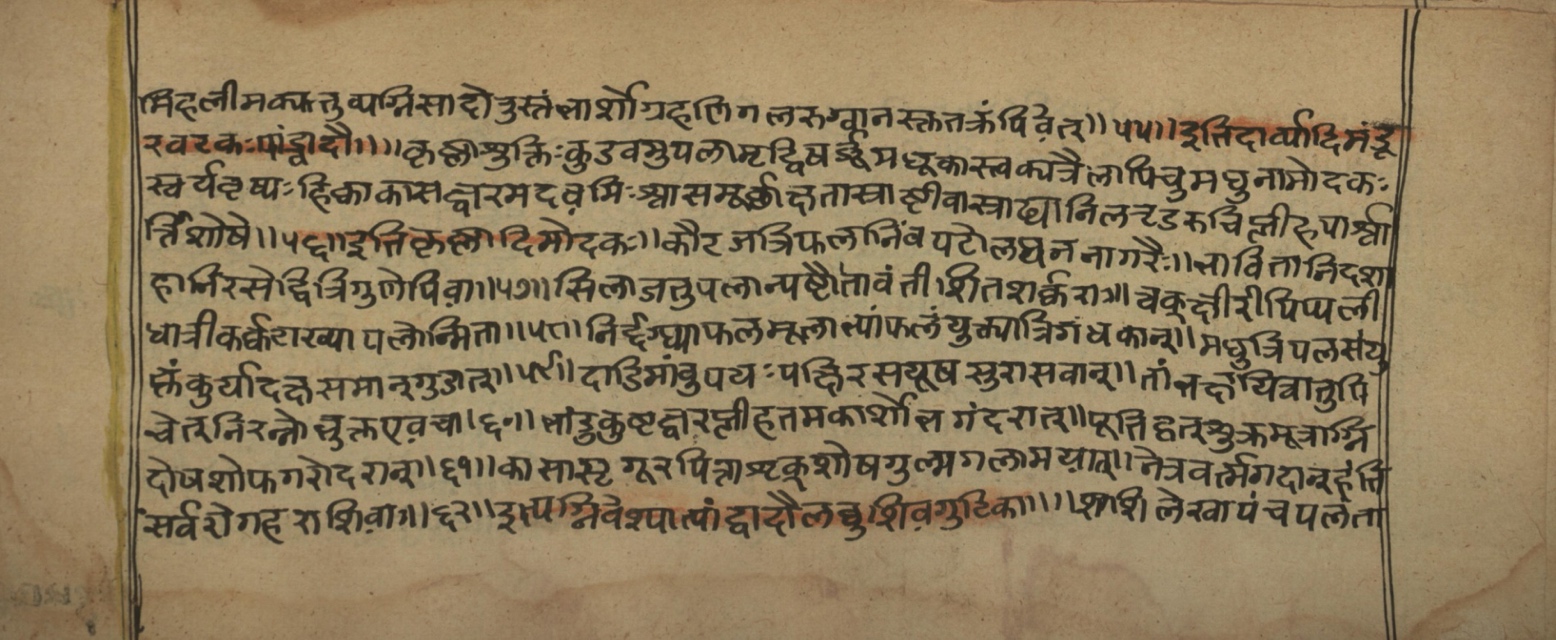 मिहलीमकात्तुव्यग्निसादोरुस्तंभार्शोग्रहणिगलरुग्वानस्क्ततक्रंपिवेत्॥५५॥इतिदार्व्यादिमंडू
रवटकःपांड्वादौ॥॥कृष्णाशुक्तिःकुडवमुपलामृद्विषर्ज्जूमधूकास्त्वक्पत्रैलापिचुमधुनामोदकः
स्वर्यवृष्यःहिक्काकासज्वरमदवमिःश्वासमूर्छाक्षतास्राष्टीवास्राढ्यानिलतृडरुचिप्लीहपार्श्वा
र्त्तिशोषे॥५६॥इतिकृष्णादिमोदकः॥कौटजत्रिफलानिंवपटोलघननागरैः॥भावितानिदशा
हानिरसेद्वित्रिगुणेपिवा॥५७॥सिलाजतुपलान्यष्टौतावंतीशितशर्क्करा॥त्वक्क्षीरीपिप्पली
धात्रीकर्क्कटाख्यापलोन्मिता॥५८॥निर्द्दग्ध्याफलमूलाभ्यांफलंयुक्त्यात्रिगंधकान्॥मधुत्रिपलसंयु
क्तंकुर्यादक्षसमान्गुडान्॥५९॥दाडिमांवुपयःपक्षिरसयूषसुरासवान्॥तांभक्षयित्वानुपि
वेत्निरन्नोभुक्तएवचा॥६०॥पांडुकुष्टज्वरप्लीहतमकार्शोभगंदरान्॥पूतिहृत्शुक्रमूत्राग्नि
दोषशोफगरोदरान्॥६१॥कासासृग्दरपित्तासृक्शोषगुल्मगलामयान्॥नेत्रवर्त्मगदान्हंति
सर्वरोगहराशिवा॥६२॥इत्यग्निवेश्यात्पांड्वादौलघुशिवगुटिका॥॥शशिलेखापंचपलंता